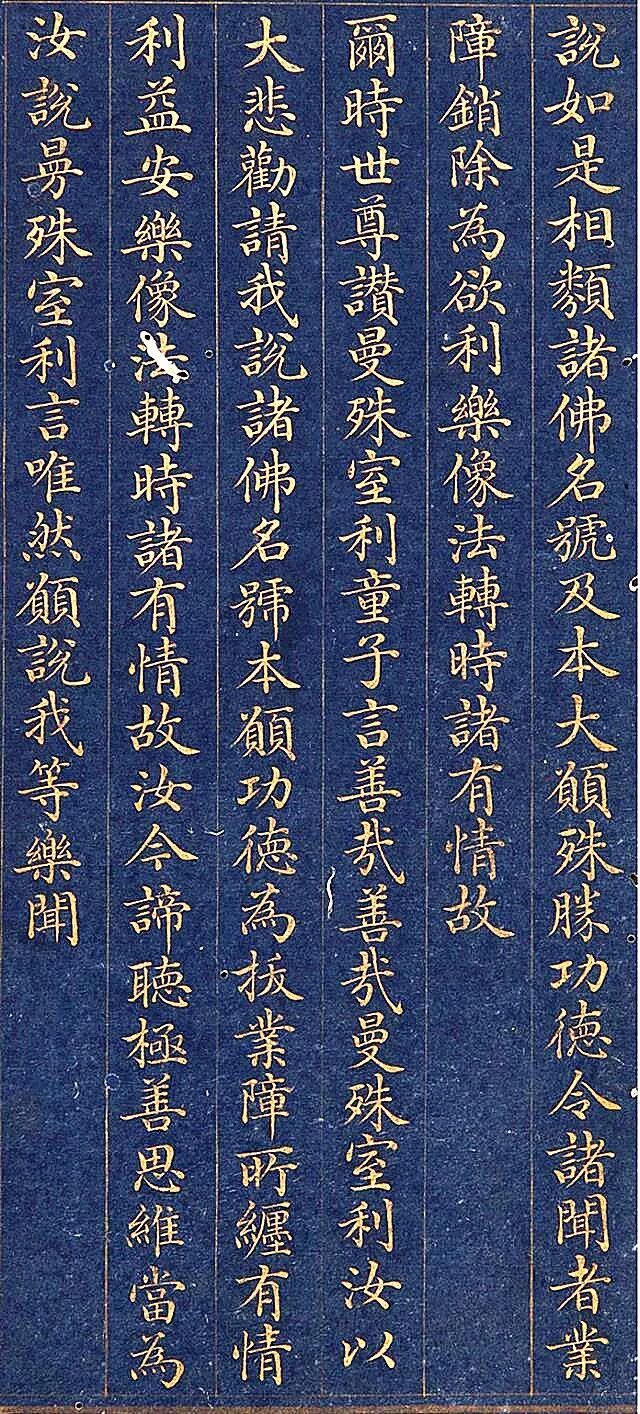 說如是相類諸佛名號及本大願殊勝功德令諸聞者業
障銷除為欲利樂像法轉時諸有情故
爾時世尊讚曼殊室利童子言善哉善哉曼殊室利汝以
大悲勸請我說諸佛名號本願功德為拔業障所纏有情
利益安樂像法轉時諸有情故汝今諦聽極善思惟當為
汝說曼殊室利言唯然願說我等樂聞